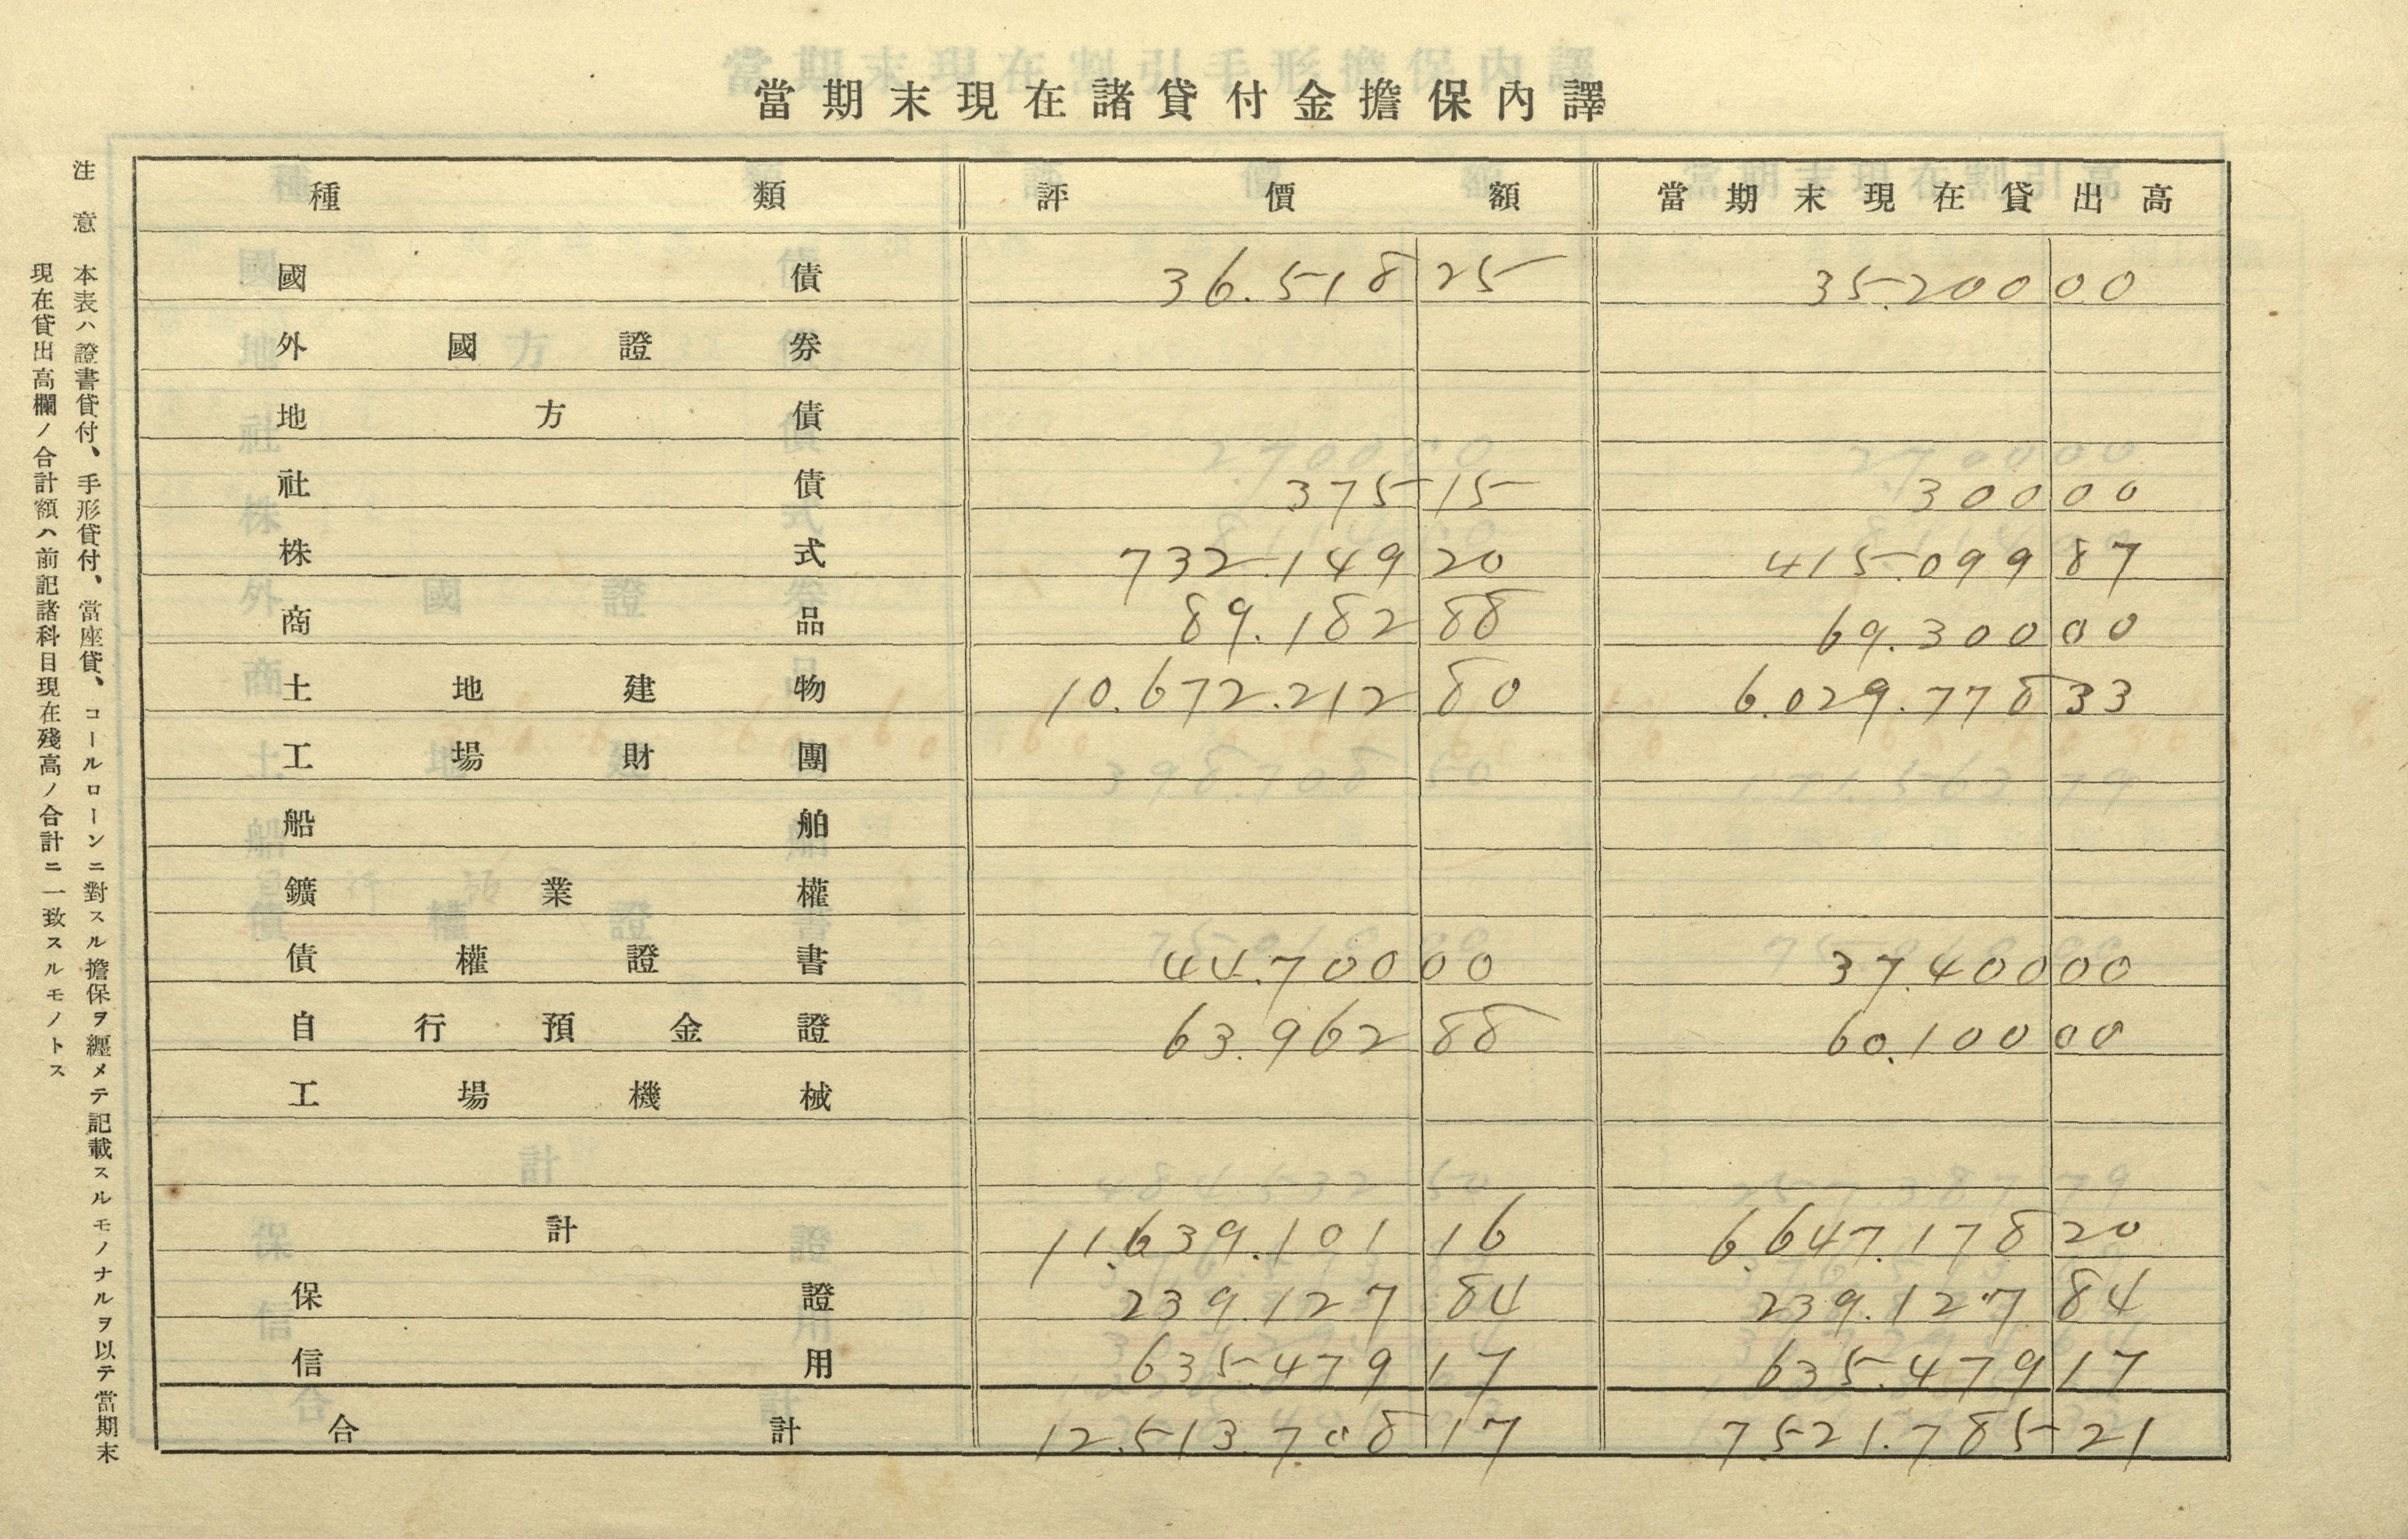 當期末現在諸貸付金擔保內譯
種類 評價額 當期末現在貸出高
國債 36.518 25 35.200 00
外國證券
地方債
社債 375 15 300 00
株式 732.149 20 415.099 87
商品 89.182 88 69.300 00
土地建物 10.672.212 80 6.029.778 33
工場財團
船舶
鑛業權
債權證書 44.700 00 37.400 00
自行預金證 63.962 88 60.100 00
工場機械
計 11.639.101 16 6.647.178 20
保證 239.127 84 239.127 84
信用 635.479 17 635.479 17
合計 12.513.708 17 7.521.785 21
注意 本表ハ證書貸付、手形貸付、當座貸、コールローンニ對スル擔保ヲ纒メテ記載スルモノナルヲ以テ當期末
現在貸出高欄ノ合計額ハ前記諸科目現在殘高ノ合計ニ一致スルモノトス